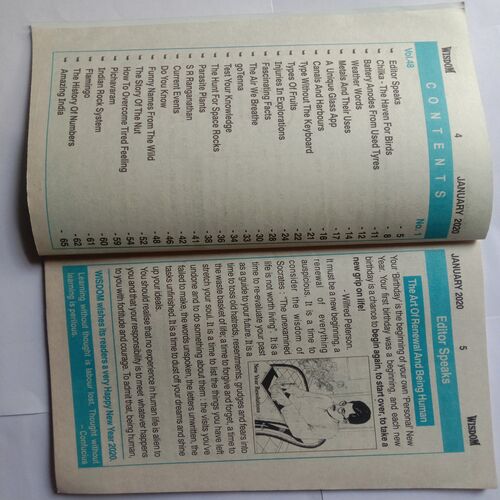 WISDOM 4 JANUARY 2020
Vol.48 CONTENTS No. 1
Editor Speaks - 5
Chilka - The Haven For Birds - 8
Battery Anodes From Used Tyres - 11
Weather Words - 12
Metals And Their Uses - 14
A Unique Glass App - 17
Canals And Harbours - 18
Type Without The Keyboard - 21
Types Of Fruits - 22
Injuries In Explorations - 24
Fascinating Facts - 28
The Air We Breathe - 30
goTenna - 33
Test Your Knowledge - 34
The Hunt For Space Rocks - 36
Parasite Plants - 38
S R Ranganathan - 41
Current Events - 42
Do You Know - 46
Funny Names From The Wild - 48
The Story Of The Nut - 52
How To Overcome Tired Feeling - 54
Pichavaram - 59
Indian Rock System - 60
Flamingo - 61
The History Of Numbers - 62
Amazing India - 65
JANUARY 2020 5 WISDOM
Editor Speaks
The Art Of Renewal And Being Human
Your 'Birthday' is the beginning of your own 'Personal' New
Year. Your first birthday was a beginning, and each new
birthday is a chance to begin again, to start over, to take a
new grip on life!
Wilfred Peterson.
It must be a new beginning, a
renewal of everything
auspicious. It is a time to
consider the wisdom of
Socrates - "The unexamined
life is not worth living". It is a
time to re-evaluate your past
as a guide to your future. It is a
time to toss old hatreds, resentments, grudges and fears into
the waste basket of life; a time to forgive and forget, a time to
stretch your soul. It is a time to list the things you have left
undone and to do something about them : the visits you've
failed to make, the words unspoken, the letters unwritten, the
tasks unfinished. It is a time to dust off your dreams and shine
up your ideals.
You should realise that no experience in human life is alien to
you and that your responsibility is to meet whatever happens
to you with fortitude and courage. To admit that, being human,
New Year Resolutions
WISDOM wishes its readers a very Happy New Year 2020.
Learning without thought is labour lost. Thought without
learning is perilous. - Confucius